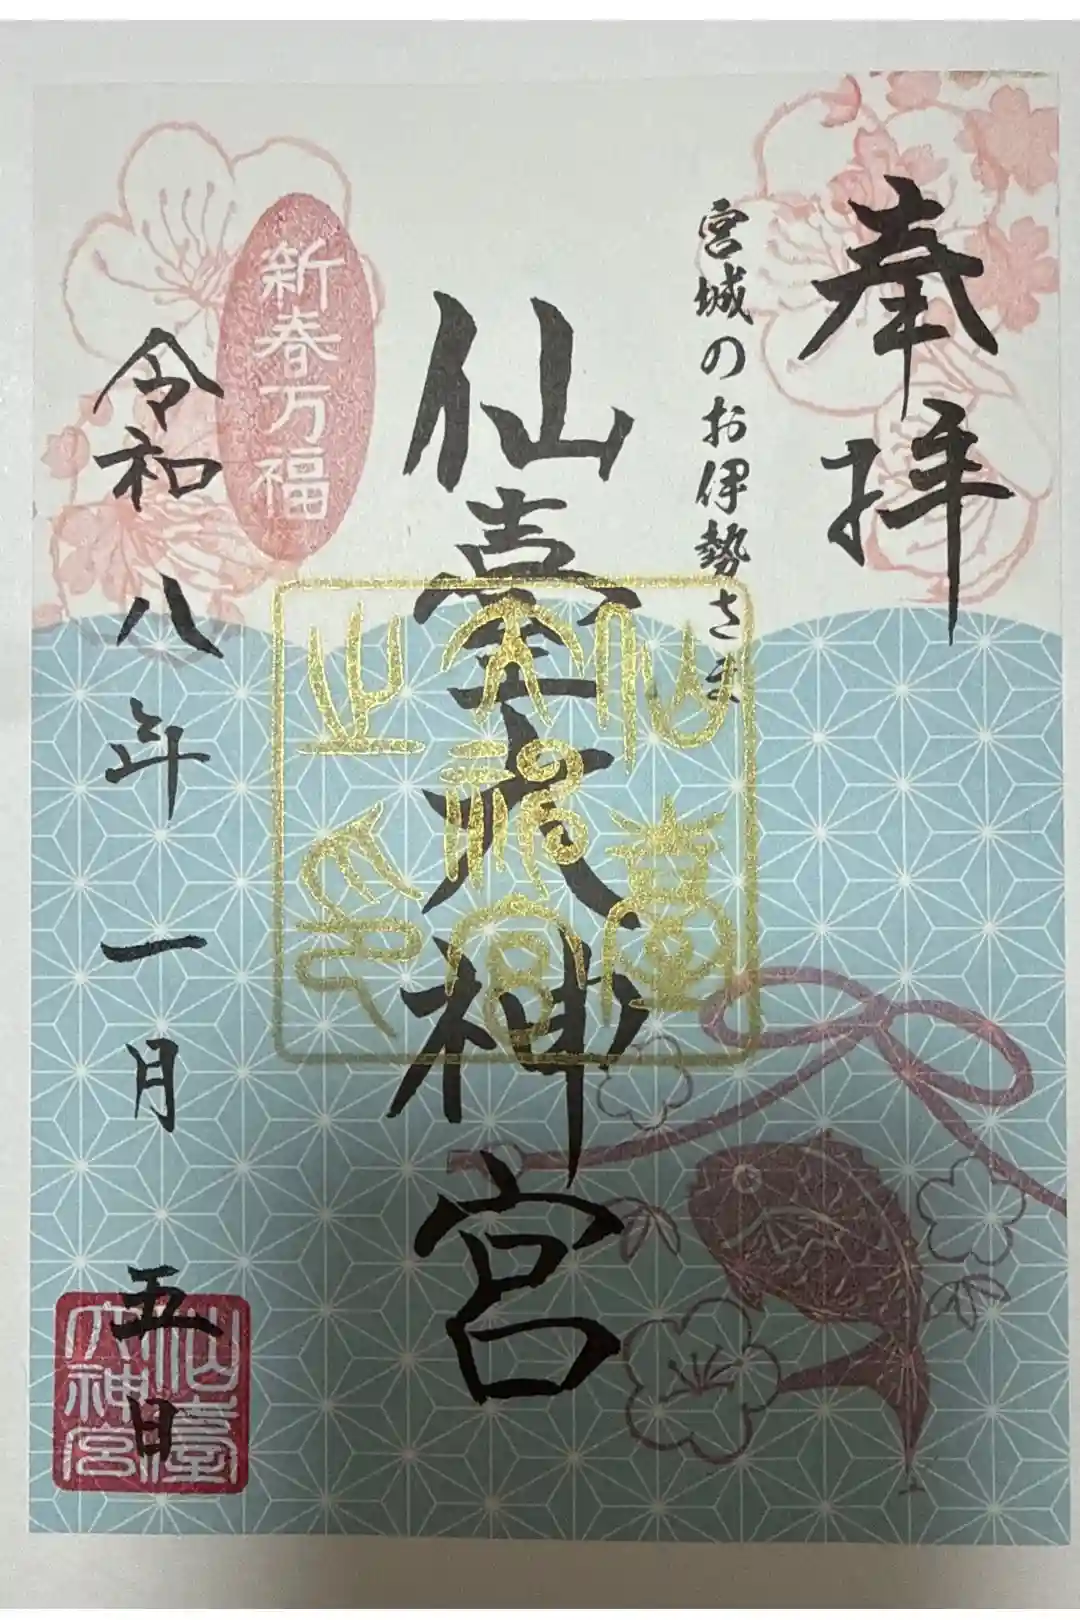 奉拝
宮城のお伊勢さま
仙臺大神宮
仙臺
大神宮
之印
新春万福
令和八年一月五日
仙臺
大神宮